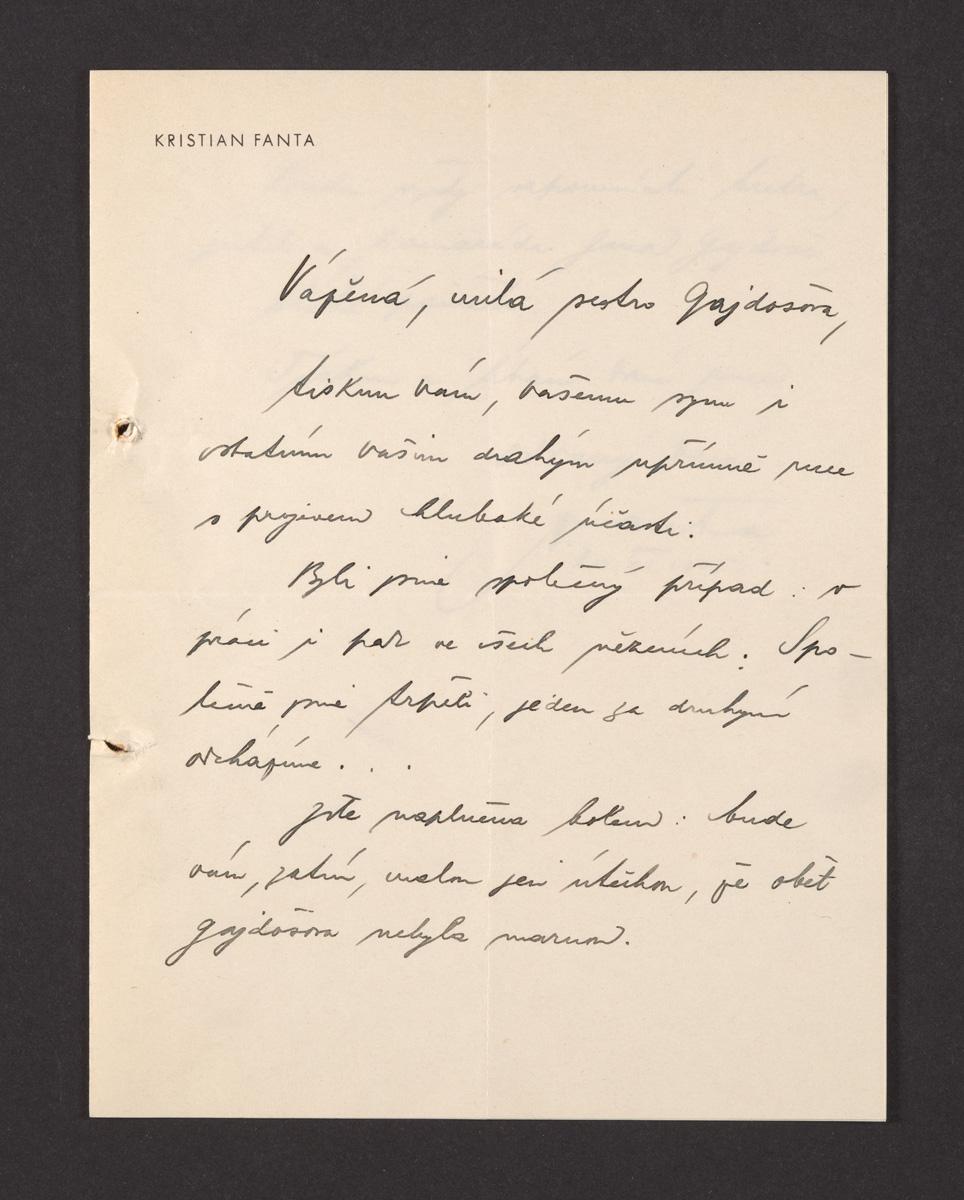 KRISTIAN FANTA
Vážená, milá sestro Gajdošova,
tisknu vám, vašemu synu i
ostatním vašim drahým upřímně ruce
s projevem hluboké účasti.
Byli jsme společný případ: v
práci i pak ve všech vězeních. Spo-
léčně jsme trpěli, jeden za druhým
odcházíme . . .
Jste naplněna bolem: bude
vám, zatím, malou jen útěchou, že oběť
Gajdošova nebyla marnou.